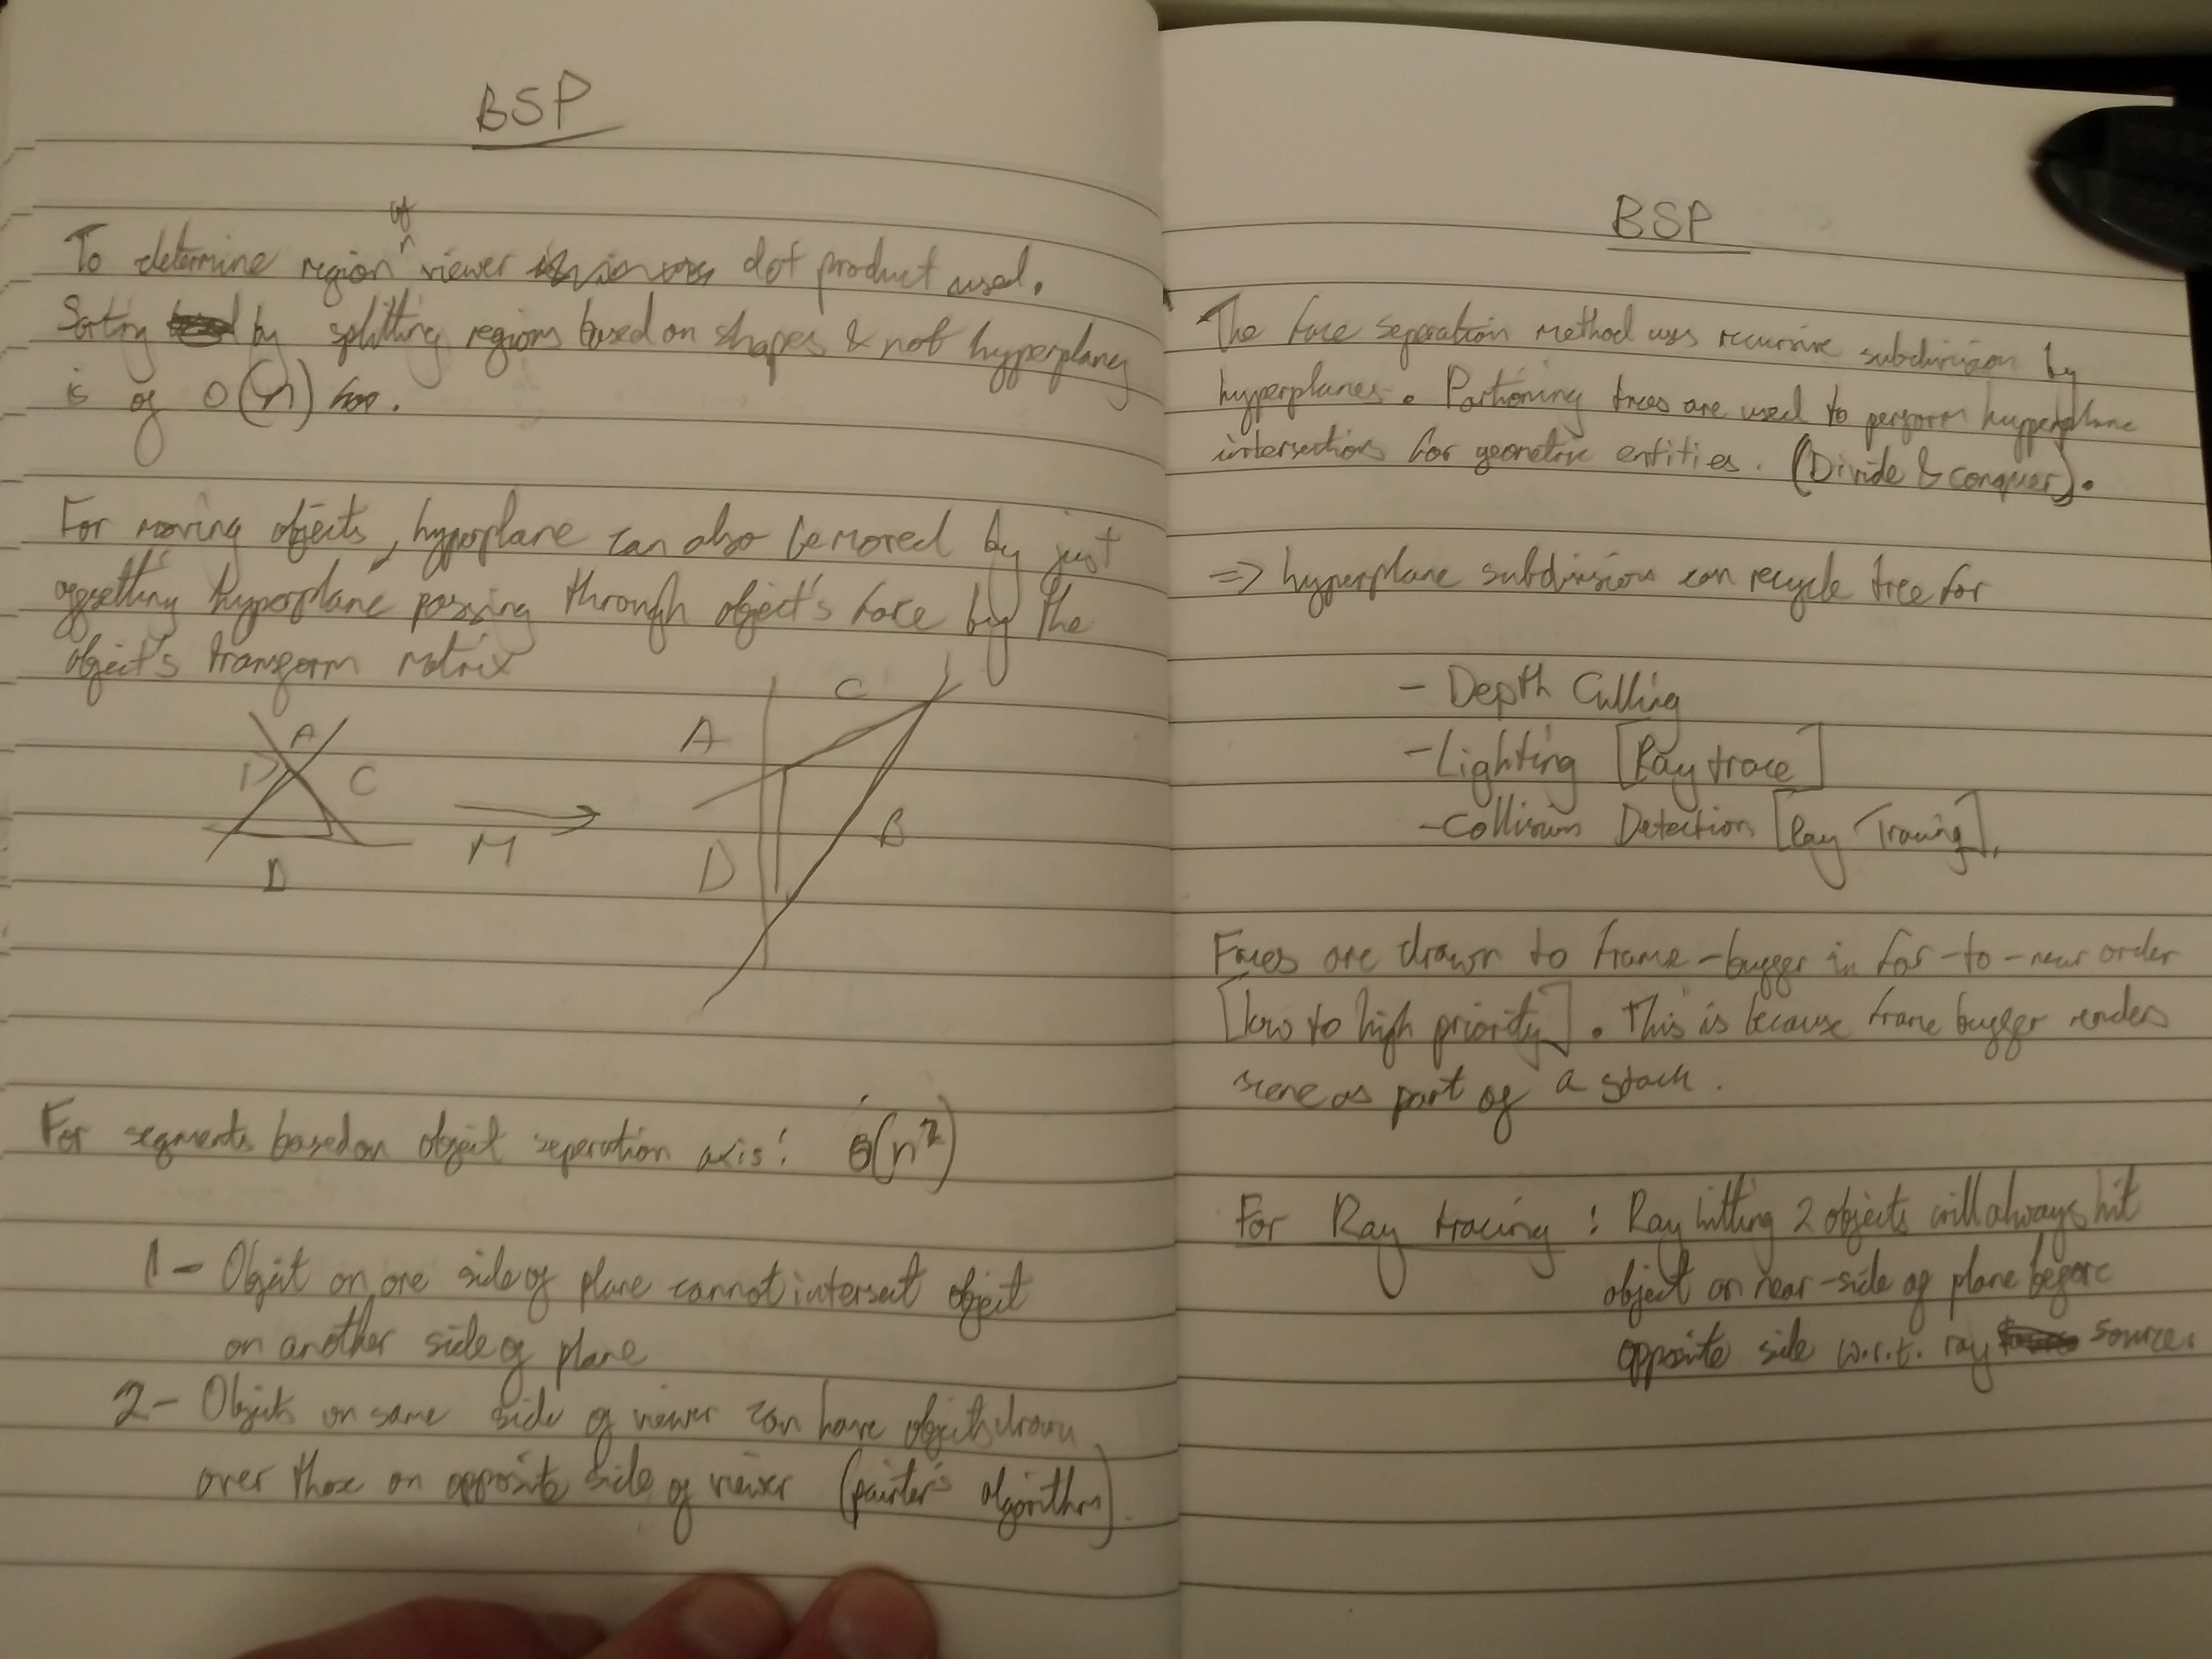 BSP
To determine region of viewer dot product used.
Sorting by splitting regions based on shapes & not hyperplanes
is of O(n) too.
For moving objects, hyperplane can also be moved by just
offsetting hyperplane passing through object's face by the
object's transform matrix
A
D
C
B
M
A
C
D
B
For segments based on object seperation axis: O(n²)
1- Object on one side of plane cannot intersect object
on another side of plane
2- Objects on same side of viewer can have objects drawn
over those on opposite side of viewer (painter's algorithm).
BSP
The face separation method uses recursive subdivision by
hyperplanes. Partioning trees are used to perform hyperplane
intersections for geometric entities. (Divide & conquer).
=> hyperplane subdivision can recycle tree for
- Depth Culling
- Lighting [Ray trace]
- Collision Detection [Ray Tracing].
Faces are drawn to frame-buffer in far-to-near order
[low to high priority]. This is because frame buffer renders
scene as part of a stack.
For Ray tracing : Ray hitting 2 objects will always hit
object on near-side of plane before
opposite side w.r.t. ray source.